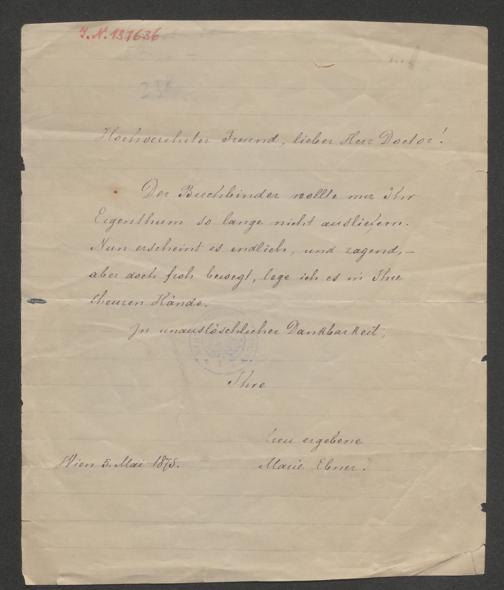 J. N. 137636
Hochverehrter Freund, lieber Herr Doctor!
Der Buchbinder wollte mir Ihr
Eigenthum so lange nicht ausliefern.
Nun erscheint es endlich, und zagend, –
aber doch froh bewegt, lege ich es in Ihre
theuren Hände.
In unauslöschlicher Dankbarkeit,
Ihre
treu ergebene
Wien 5. Mai 1875.
Marie Ebner.